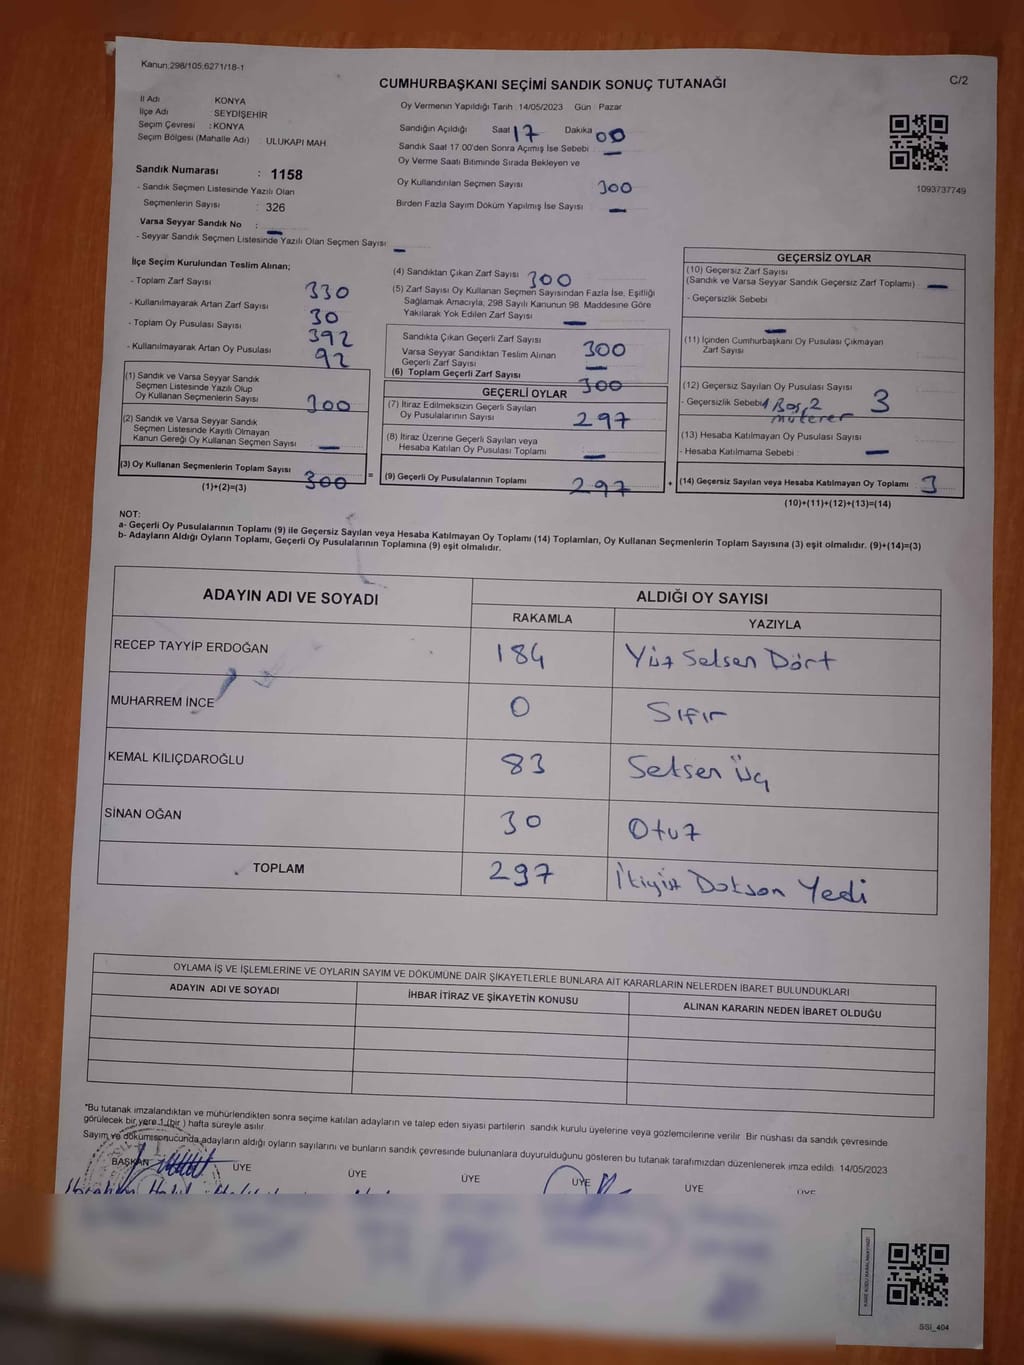 Kanun:298/105,6271/18-1
C/2
CUMHURBAŞKANI SEÇİMİ SANDIK SONUÇ TUTANAĞI
İl Adı KONYA
İlçe Adı SEYDİŞEHİR
Seçim Çevresi : KONYA
Seçim Bölgesi (Mahalle Adı) : ULUKAPI MAH
Sandık Numarası : 1158
- Sandık Seçmen Listesinde Yazılı Olan
Seçmenlerin Sayısı : 326
Varsa Seyyar Sandık No : -
- Seyyar Sandık Seçmen Listesinde Yazılı Olan Seçmen Sayısı -
Oy Vermenin Yapıldığı Tarih : 14/05/2023 Gün : Pazar
Sandığın Açıldığı Saat 17 Dakika 00
Sandık Saat 17 00'den Sonra Açımış İse Sebebi -
Oy Verme Saati Bitiminde Sırada Bekleyen ve
Oy Kullandırılan Seçmen Sayısı 300
Birden Fazla Sayım Döküm Yapılmış İse Sayısı -
1093737749
İlçe Seçim Kurulundan Teslim Alınan;
- Toplam Zarf Sayısı 330
- Kullanılmayarak Artan Zarf Sayısı 30
- Toplam Oy Pusulası Sayısı 392
- Kullanılmayarak Artan Oy Pusulası 92
(1) Sandık ve Varsa Seyyar Sandık
Seçmen Listesinde Yazılı Olup
Oy Kullanan Seçmenlerin Sayısı 300
(2) Sandık ve Varsa Seyyar Sandık
Seçmen Listesinde Kayıtlı Olmayan
Kanun Gereği Oy Kullanan Seçmen Sayısı -
(3) Oy Kullanan Seçmenlerin Toplam Sayısı 300
(1)+(2)=(3)
(4) Sandıktan Çıkan Zarf Sayısı 300
(5) Zarf Sayısı Oy Kullanan Seçmen Sayısından Fazla İse, Eşitliği
Sağlamak Amacıyla, 298 Sayılı Kanunun 98. Maddesine Göre
Yakılarak Yok Edilen Zarf Sayısı -
Sandıkta Çıkan Geçerli Zarf Sayısı 300
Varsa Seyyar Sandıktan Teslim Alınan
Geçerli Zarf Sayısı -
(6) Toplam Geçerli Zarf Sayısı 300
GEÇERLİ OYLAR
(7) İtiraz Edilmeksizin Geçerli Sayılan
Oy Pusulalarının Sayısı 297
(8) İtiraz Üzerine Geçerli Sayılan veya
Hesaba Katılan Oy Pusulası Toplamı -
= (9) Geçerli Oy Pusulalarının Toplamı 297 +
GEÇERSİZ OYLAR
(10) Geçersiz Zarf Sayısı
(Sandık ve Varsa Seyyar Sandık Geçersiz Zarf Toplamı) -
- Geçersizlik Sebebi
-
(11) İçinden Cumhurbaşkanı Oy Pusulası Çıkmayan
Zarf Sayısı
(12) Geçersiz Sayılan Oy Pusulası Sayısı 3
- Geçersizlik Sebebi 1 Boş, 2
(13) Hesaba Katılmayan Oy Pusulası Sayısı
- Hesaba Katılmama Sebebi -
(14) Geçersiz Sayılan veya Hesaba Katılmayan Oy Toplamı 3
(10)+(11)+(12)+(13)=(14)
NOT:
a- Geçerli Oy Pusulalarının Toplamı (9) ile Geçersiz Sayılan veya Hesaba Katılmayan Oy Toplamı (14) Toplamları, Oy Kullanan Seçmenlerin Toplam Sayısına (3) eşit olmalıdır. (9)+(14)=(3)
b- Adayların Aldığı Oyların Toplamı, Geçerli Oy Pusulalarının Toplamına (9) eşit olmalıdır.
ADAYIN ADI VE SOYADI ALDIĞI OY SAYISI
RAKAMLA YAZIYLA
RECEP TAYYİP ERDOĞAN 184 Yüz Seksen Dört
MUHARREM İNCE 0 Sıfır
KEMAL KILIÇDAROĞLU 83 Seksen Üç
SİNAN OĞAN 30 Otuz
TOPLAM 297 İkiyüz Doksan Yedi
OYLAMA İŞ VE İŞLEMLERİNE VE OYLARIN SAYIM VE DÖKÜMÜNE DAİR ŞİKAYETLERLE BUNLARA AİT KARARLARIN NELERDEN İBARET BULUNDUKLARI
ADAYIN ADI VE SOYADI İHBAR İTİRAZ VE ŞİKAYETİN KONUSU ALINAN KARARIN NEDEN İBARET OLDUĞU
*Bu tutanak imzalandıktan ve mühürlendikten sonra seçime katılan adayların ve talep eden siyasi partilerin sandık kurulu üyelerine veya gözlemcilerine verilir. Bir nüshası da sandık çevresinde
görülecek bir yere 1 (bir) hafta süreyle asılır.
Sayım ve dökümsonucunda adayların aldığı oyların sayılarını ve bunların sandık çevresinde bulunanlara duyurulduğunu gösteren bu tutanak tarafımızdan düzenlenerek imza edildi. 14/05/2023
BAŞKAN ÜYE ÜYE ÜYE ÜYE ÜYE ÜYE
SSI_404